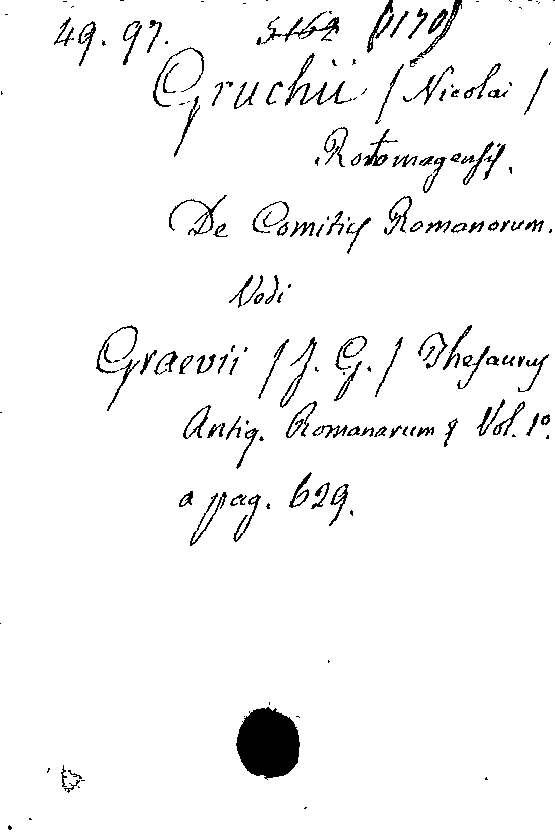 49. 97. 5162 (1170)
Gruchii / Nicolai /
Rotomagensis.
De Comitiis Romanorum.
Vedi
Graevii / J. G. / Thesaurus
Antiq. Romanarum & Vol. 1º.
a pag. 629.